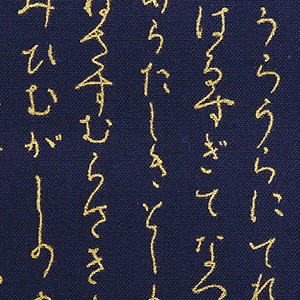 うらうらにてれ
はるすぎてなつ
あらたしきとし
ねさすむらさき
ひむがしの